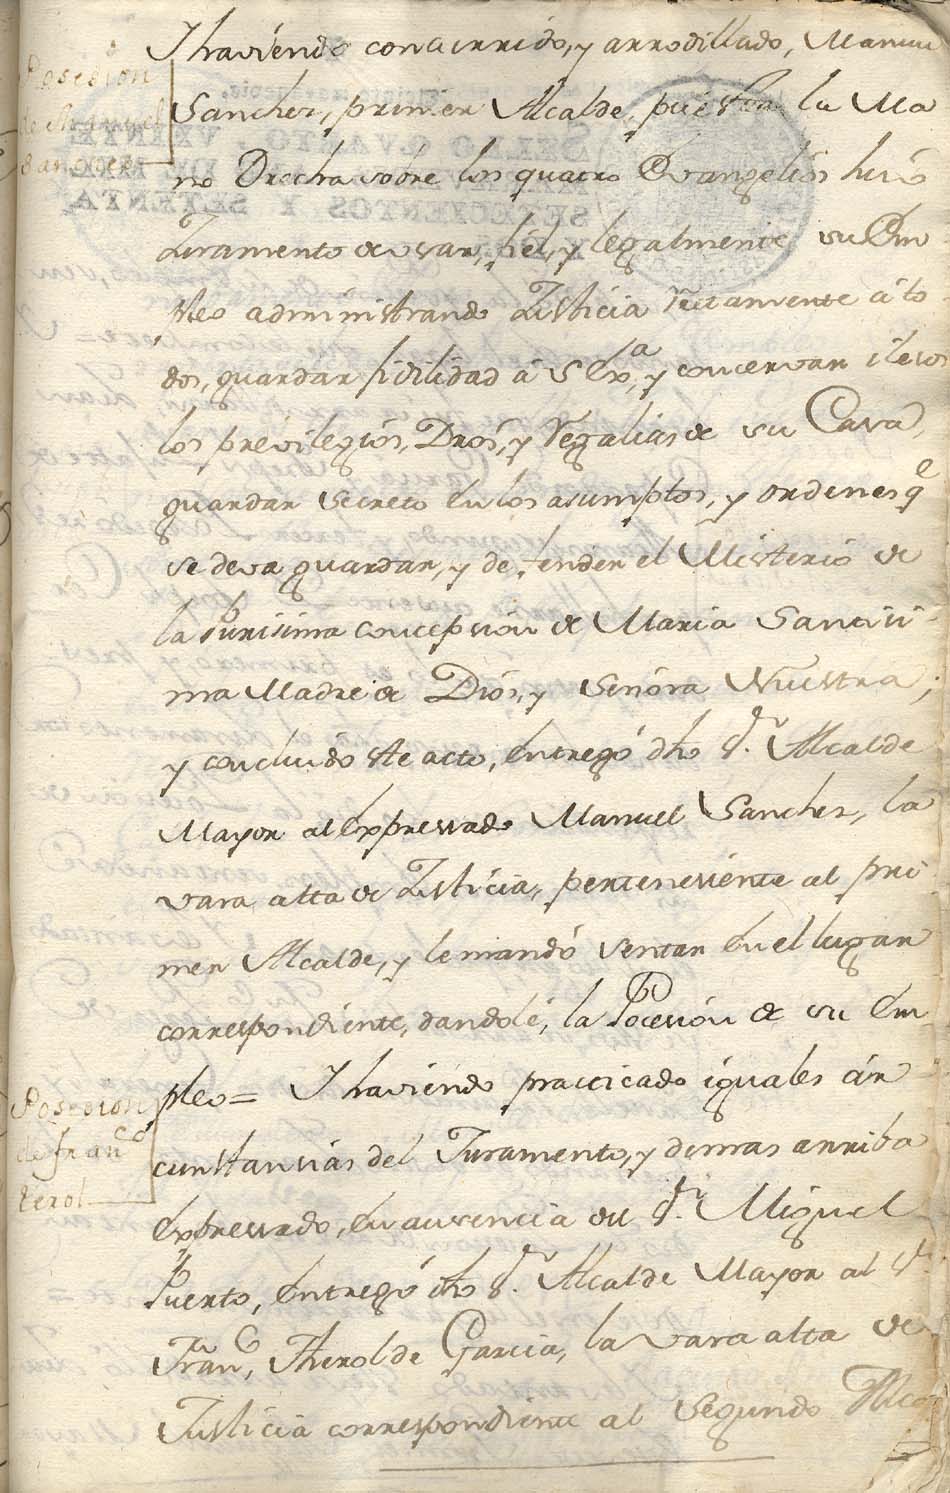 Posecion
de Manuel
Sanchez
Y haviendo concurrido, y arrodillado, Manuel
Sanchez, primer Alcalde, puesta la Ma
no Drecha sobre los quatro Evangelios hizo
Juramento de usar, fiel, y legalmente su Em
pleo administrando Justicia rectamente á to
dos, guardar fidilidad á S Exa, y concervar ilesos
los previlegios, Dros, y Regalias de su Casa,
guardar secreto en los asumptos, y ordenes q
se deva guardar, y defender el Misterio de
la Purisima concepsion de Maria Santisi
ma Madre de Dios, y Señora Nuestra;
y concluido este acto, entregó dho Sr. Alcalde
Mayor al expresado Manuel Sanchez, la
vara alta de Justicia, perteneciente al pri
mer Alcalde, y le mandó sentar en el lugar
correspondiente, dandole, la Pocesion de su Em
pleo = Y haviendo practicado iguales cir
Posecion
de Franco
Terol
cunstancias del Juramento, y demas arriba
expresado, en ausencia de Sr. Miguel
Puerto, entregó dho Sr. Alcalde Mayor al Sr.
Franco, Therol de Garcia, la vara alta de
Justicia correspondiente al segundo Alcal